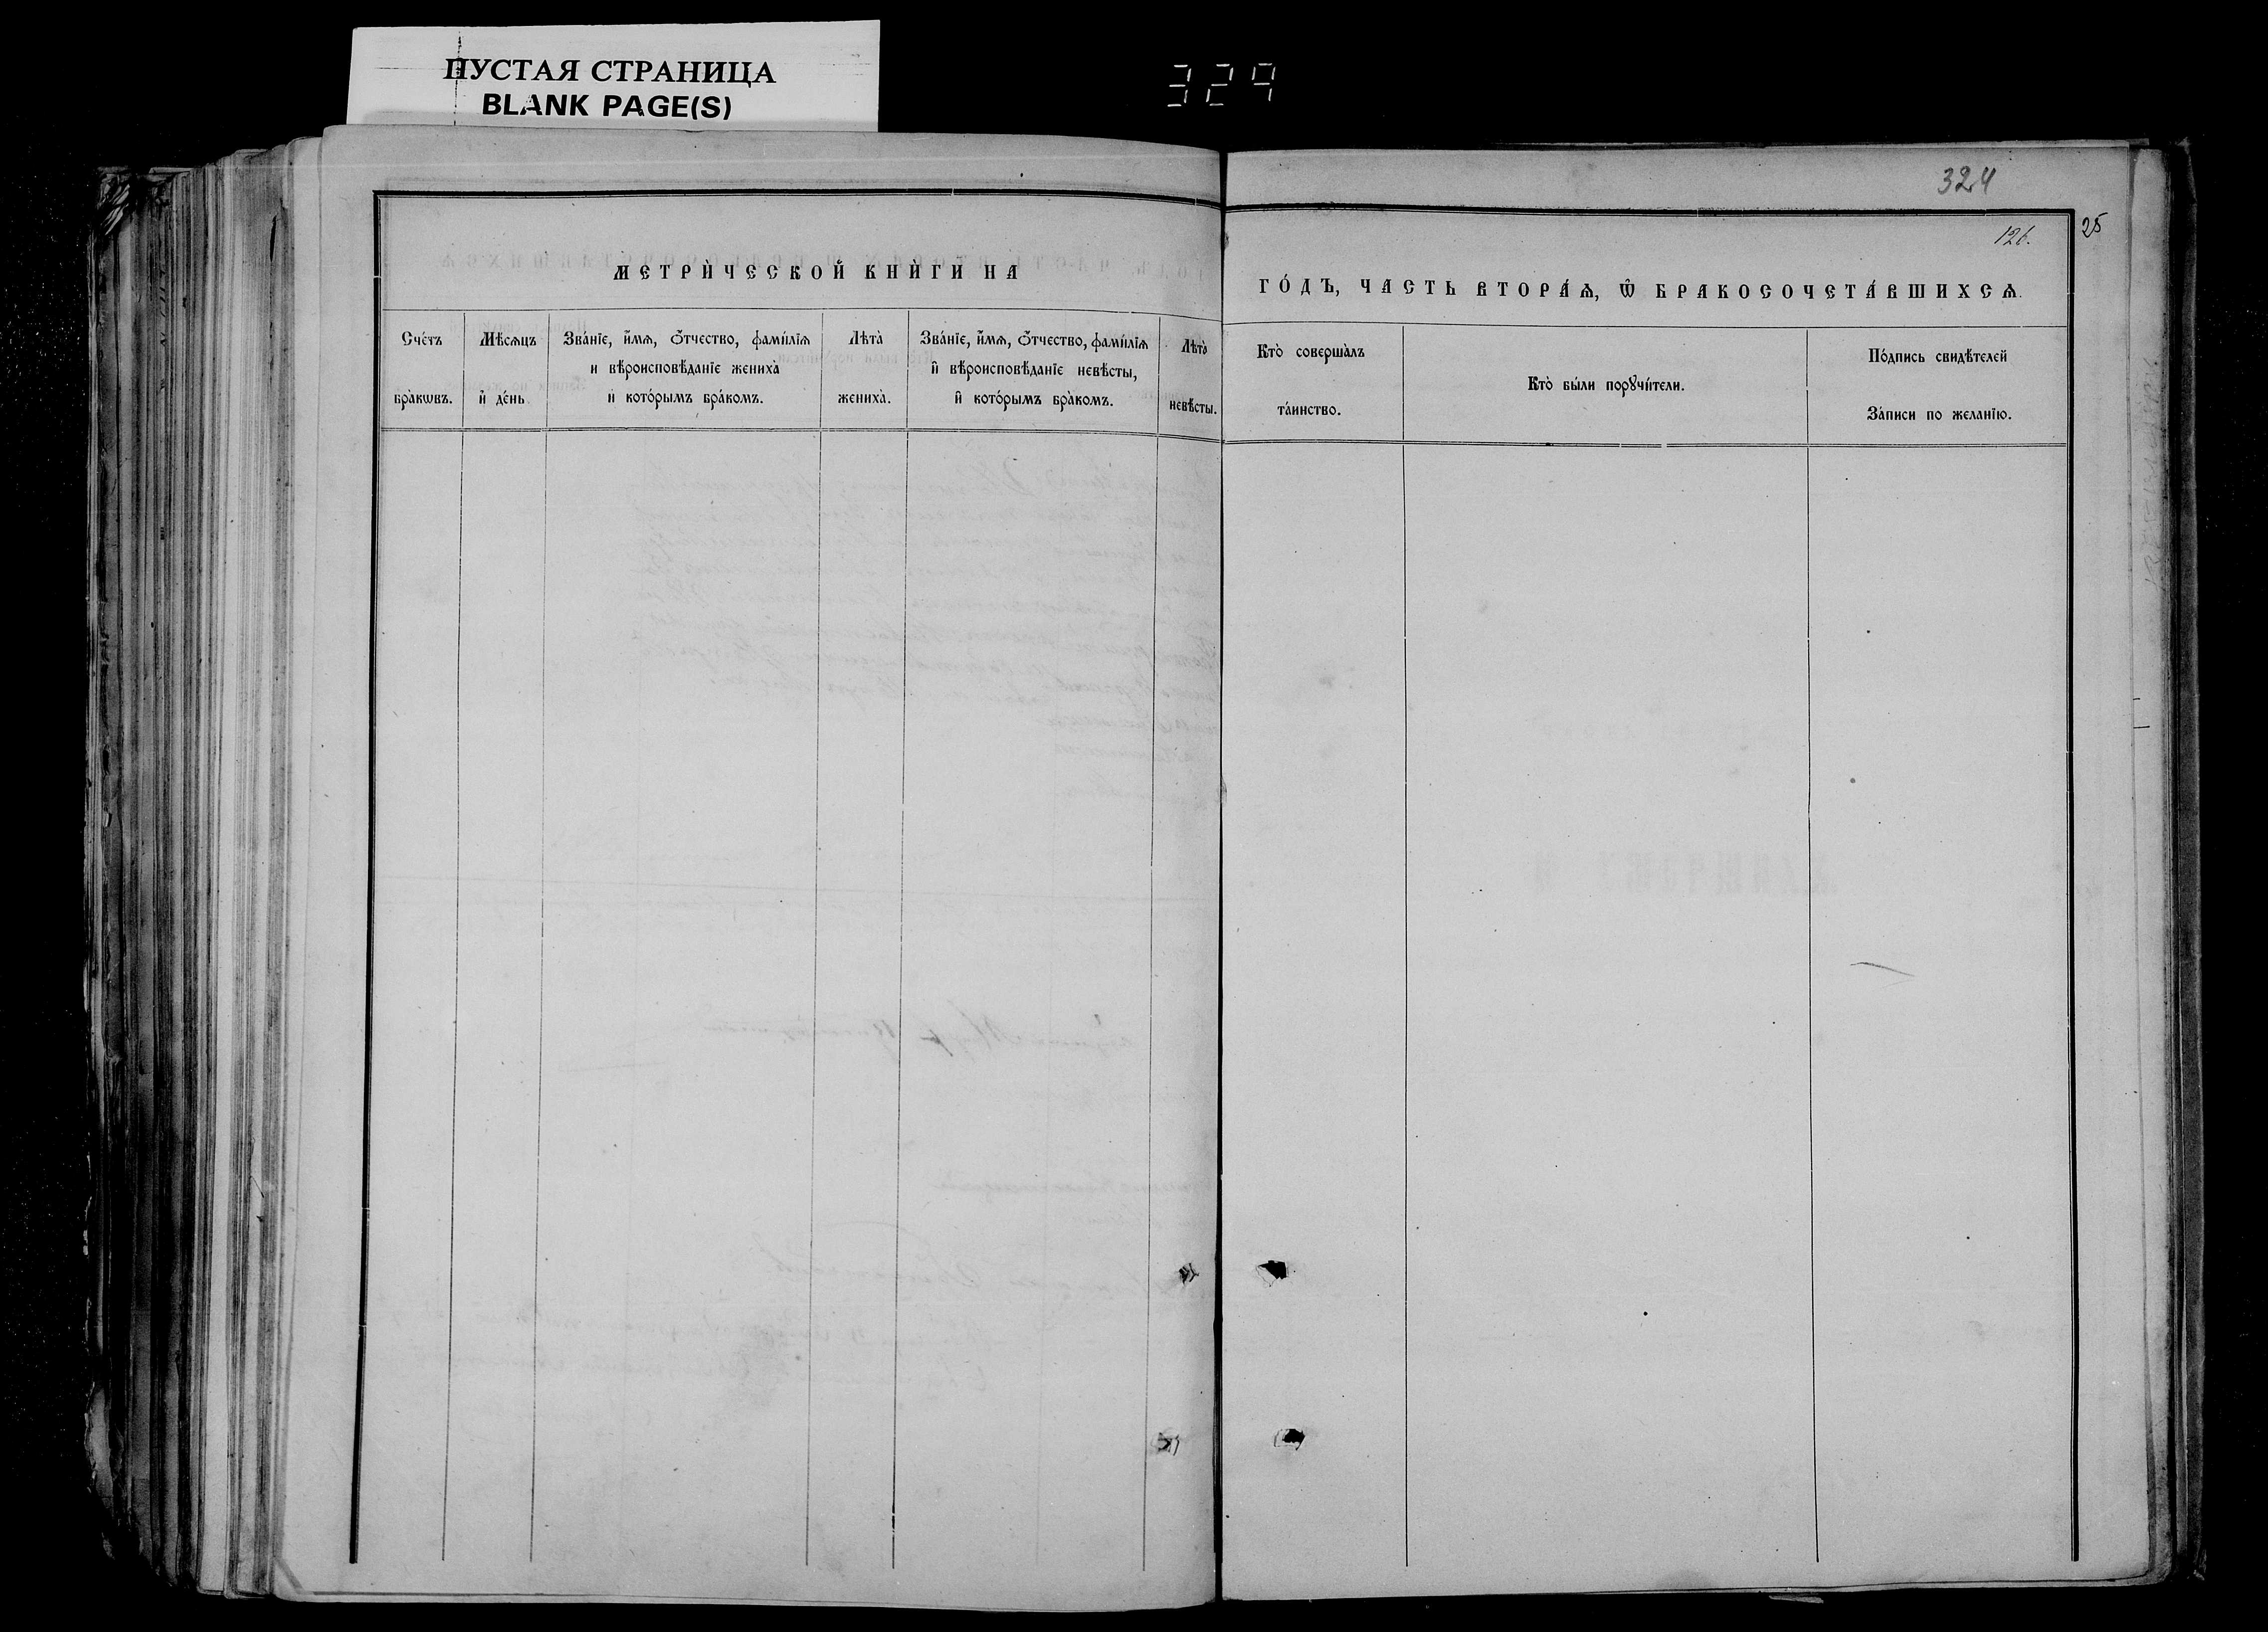 ПУСТАЯ СТРАНИЦА
BLANK PAGE(S)
329
324
126.
25
МЕТРИ́ЧЕСКОЙ КНИ́ГИ НА
ГО́ДЪ, ЧАСТЬ ВТОРА́Ѧ, Ѡ҆ БРАКОСОЧЕТА́ВШИХСѦ.
Сче́тъ
бра̀кѡвъ.
Мѣ́сѧцъ
и҆ де́нь
Зва́нїе, и҆́мѧ, ѻ҆́тчество, фами́лїѧ
и вѣроисповѣ́данїе жениха̀
и҆ кото́рымъ бра́комъ.
Лѣта̀
жениха̀.
Зва́нїе, и҆́мѧ, ѻ҆́тчество, фами́лїѧ
и҆ вѣроисповѣ́данїе невѣ́сты,
и҆ кото́рымъ бра́комъ.
Лѣта̀
невѣ́сты.
Кто̀ соверша̀лъ
та́инство.
Кто̀ бы́ли порꙋчи́тели.
По́дпись свидѣ́телей
За́писи по желанїю.